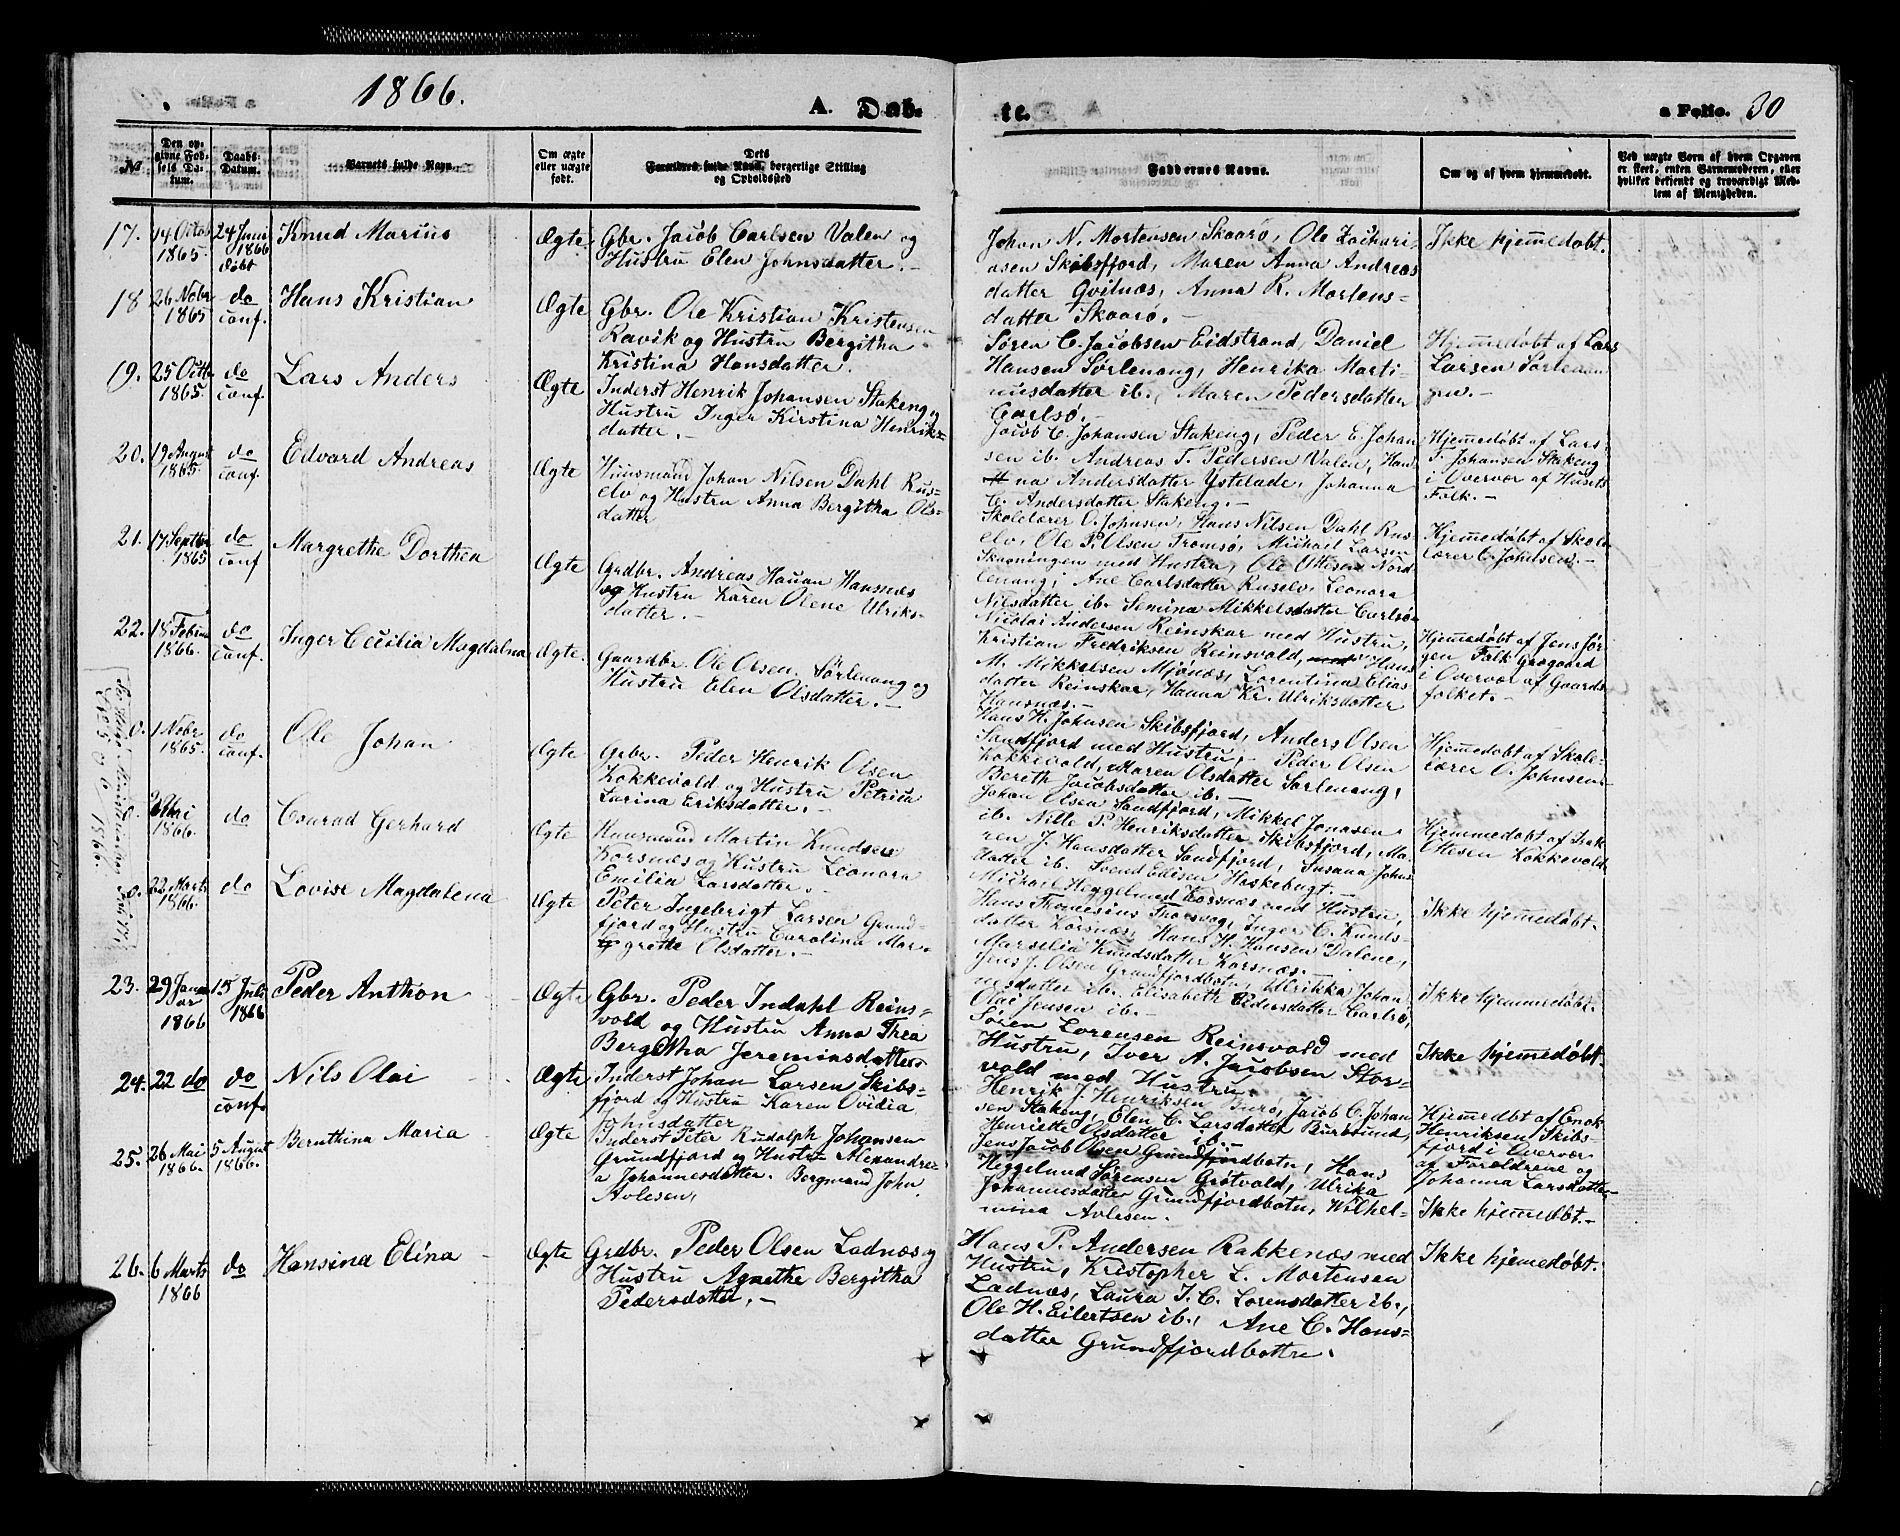 1866.
A. Døb-
te.
a Folio. 30
No
Den op-
givne Fød-
sels Da-
tum.
Daabs-
Datum.
Barnets fulde Navn.
Om ægte
eller uægte
født.
Dets
Forældres fulde Navn, borgerlige Stilling
og Opholdssted
Faddernes Navne.
Om og af hvem hjemmedøbt.
Ved uægte Børn af hvem Opgaven
er skeet, enten Barnemoderen, eller
hvilket bekjendt og troværdigt Med-
lem af Menigheden.
17. 14 Octob 1865. 24 Juni 1866 døbt
Knud Marius
Ægte
Gbr. Jacob Carlsen Valen og
Hustru Elen Johnsdatter. -
Johan N. Mortensen Skaarø, Ole Zachari-
asen Skibsfjord, Maren Anna Andreas
datter Qvitnæs, Anna R. Mortens-
datter Skaarø. -
Ikke hjemmedøbt.
18 26 Nobr 1865 do conf.
Hans Kristian
Ægte
Gbr. Ole Kristian Kristensen
Ravik og Hustru Bergitha
Kristina Hansdatter.
Søren C. Jacobsen Eidstrand, Daniel
Hansen Sørlenang, Henrika Marti-
nusdatter ib., Maren Pedersdatter
Carlsø. -
Hjemmedøbt af Lars
Larsen Sørlenan
gen. -
19. 25 Octb 1865. do conf.
Lars Anders
Ægte
Inderst Henrik Johansen Stakeng og
Hustru Inger Kirstina Henriks-
datter. -
Jacob C. Johansen Stakeng, Peder E. Johan
sen ib. Andreas T. Pedersen Valen, Han
na Andersdatter Ystelade, Johanna
C. Andersdatter Stakeng. -
Hjemmedøbt af Lars
T. Johansen Stakeng
i Overvær af Husets
Folk. -
20. 19 August 1865. do conf.
Edvard Andreas
Ægte
Huusmand Johan Nilsen Dahl Rus-
elv og Hustru Anna Bergitha Ols-
datter
Skolelærer O. Johnsen, Hans Nilsen Dahl Rus
elv, Ole P. Olsen Tromsø, Michail Larsen
Skaaningen med Hustru, Ole Ottesen Nord
lenang, Ane Carlsdatter Ruselv, Leonora
Nilsdatter ib. Semina Mikkelsdatter Carlsø
Hjemmedøbt af Skole
lærer O. Johnsen. -
21. 17 Septbr 1865 do conf
Margrethe Dorthea
Ægte
Grdbr. Andreas Hauan Hansnæs
og Hustru Karen Olene Ulriks-
datter. -
Nicolai Andersen Reinskar med Hustru,
Kristian Fredriksen Reinsvold, Hans
M. Mikkelsen Mjønæs, Lorentina Elias
datter Reinskar, Hanna Kr. Ulriksdatter
Hansnæs. -
Hjemmedøbt af Jens Jør
gen Falk Graagaard
i Overvær af Gaards
folket. -
22. 18 Februar 1866. do conf.
Inger Cecilia Magdalna
Ægte.
Gaardbr. Ole Olsen Sørlenang og
Hustru Elen Olsdatter. -
Hans H. Johnsen Skibsfjord, Anders Olsen
Sandfjord med Hustru, Peder Olsen
Kokkevold, Maren Olsdatter Sørlenang,
Bereth Jacobsdatter ib. -
Hjemmedøbt af Skole-
lærer O. Johnsen
0. 1 Nobr 1865. do conf.
Ole Johan
Ægte
Grbr. Peder Henrik Olsen
Kokkevold og Hustru Petrica
Larina Eriksdatter. -
Johan Olsen Sandfjord, Mikkel Jonasen
ib. Nille P. Henriksdatter Skibsfjord, Ma-
ren J. Hansdatter Sandfjord, Susana Johns
datter ib. Svend Edisen Haskebugt. -
Hjemmedøbt af Isak
Ottesen Kokkevold
0. Mai 1866. do
Conrad Gerhard
Ægte
Huusmand Martin Knudsen
Korsnæs og Hustru Leonora
Emilia Larsdatter. -
Michail Heggelund Korsnæs med Hustru,
Hans Thomesius Thorsvog, Inger C. Knuds-
datter Korsnæs, Hans H. Hansen Dalene,
Marselia Knudsdatter Korsnæs. -
Ikke hjemmedøbt.
0. 22 Marts 1866. do
Lovise Magdalena
Ægte
Peter Ingebrigt Larsen Grund-
fjord og Hustru Carolina Mar-
grethe Olsdatter. -
Jens J. Olsen Grundfjordbotn, Ulrikka Johan
nesdatter ib. Elisabeth Pedersdatter Carlsø,
Olai Jensen ib. -
Ikke hjemmedøbt.
23. 29 Januar 1866 15 Juli 1866
Peder Anthon
Ægte
Gbr. Peder Indahl Reins-
vold og Hustru Anna Thea
Bergitha Jeremiasdatter
Søren Lorensen Reinsvold med
Hustru, Iver A. Jacobsen Stor-
vold med Hustru.
Ikke hjemmedøbt.
24. 22 do do conf.
Nils Olai
Ægte
Inderst Johan Larsen Skibs-
fjord og Hustru Karen Ovidia
Johnsdatter
Henrik J. Henriksen Burø, Jacob C. Johan
sen Stakeng, Elen C. Larsdatter Burøsund,
Henriette Olsdatter ib. -
Hjemmedbt af Enok
Henriksen Skibs-
fjord i Overvær
af Forældrene og
Johanna Larsdatter
25. 26 Mai 1866. 5 August 1866.
Bernthina Maria
Ægte
Inderst Peter Rudolph Johansen
Grundfjord og Hustru Alexandre-
a Johannesdatter. Borgmand John
Avlesen,
Jens Jacob Olsen Grundfjordbotn, Hans
Heggelund Sørensen Grøtvold, Ulrika
Johannesdatter Grundfjordbotn, Wilhel-
mina Avlesen.
Ikke hjemmedøbt. -
26. 6 Marts 1866 do
Hansina Elina
Ægte
Grdbr. Peder Olsen Ladnæs og
Hustru Agnethe Bergitha
Pedersdatter. -
Hans P. Andersen Rakkenæs med
Hustru, Kristopher L. Mortensen
Ladnæs, Laura I. C. Lorensdatter ib.,
Ole H. Eilertsen ib., Ane C. Hans-
datter Grundfjordbotn.
Ikke hjemmedøbt.